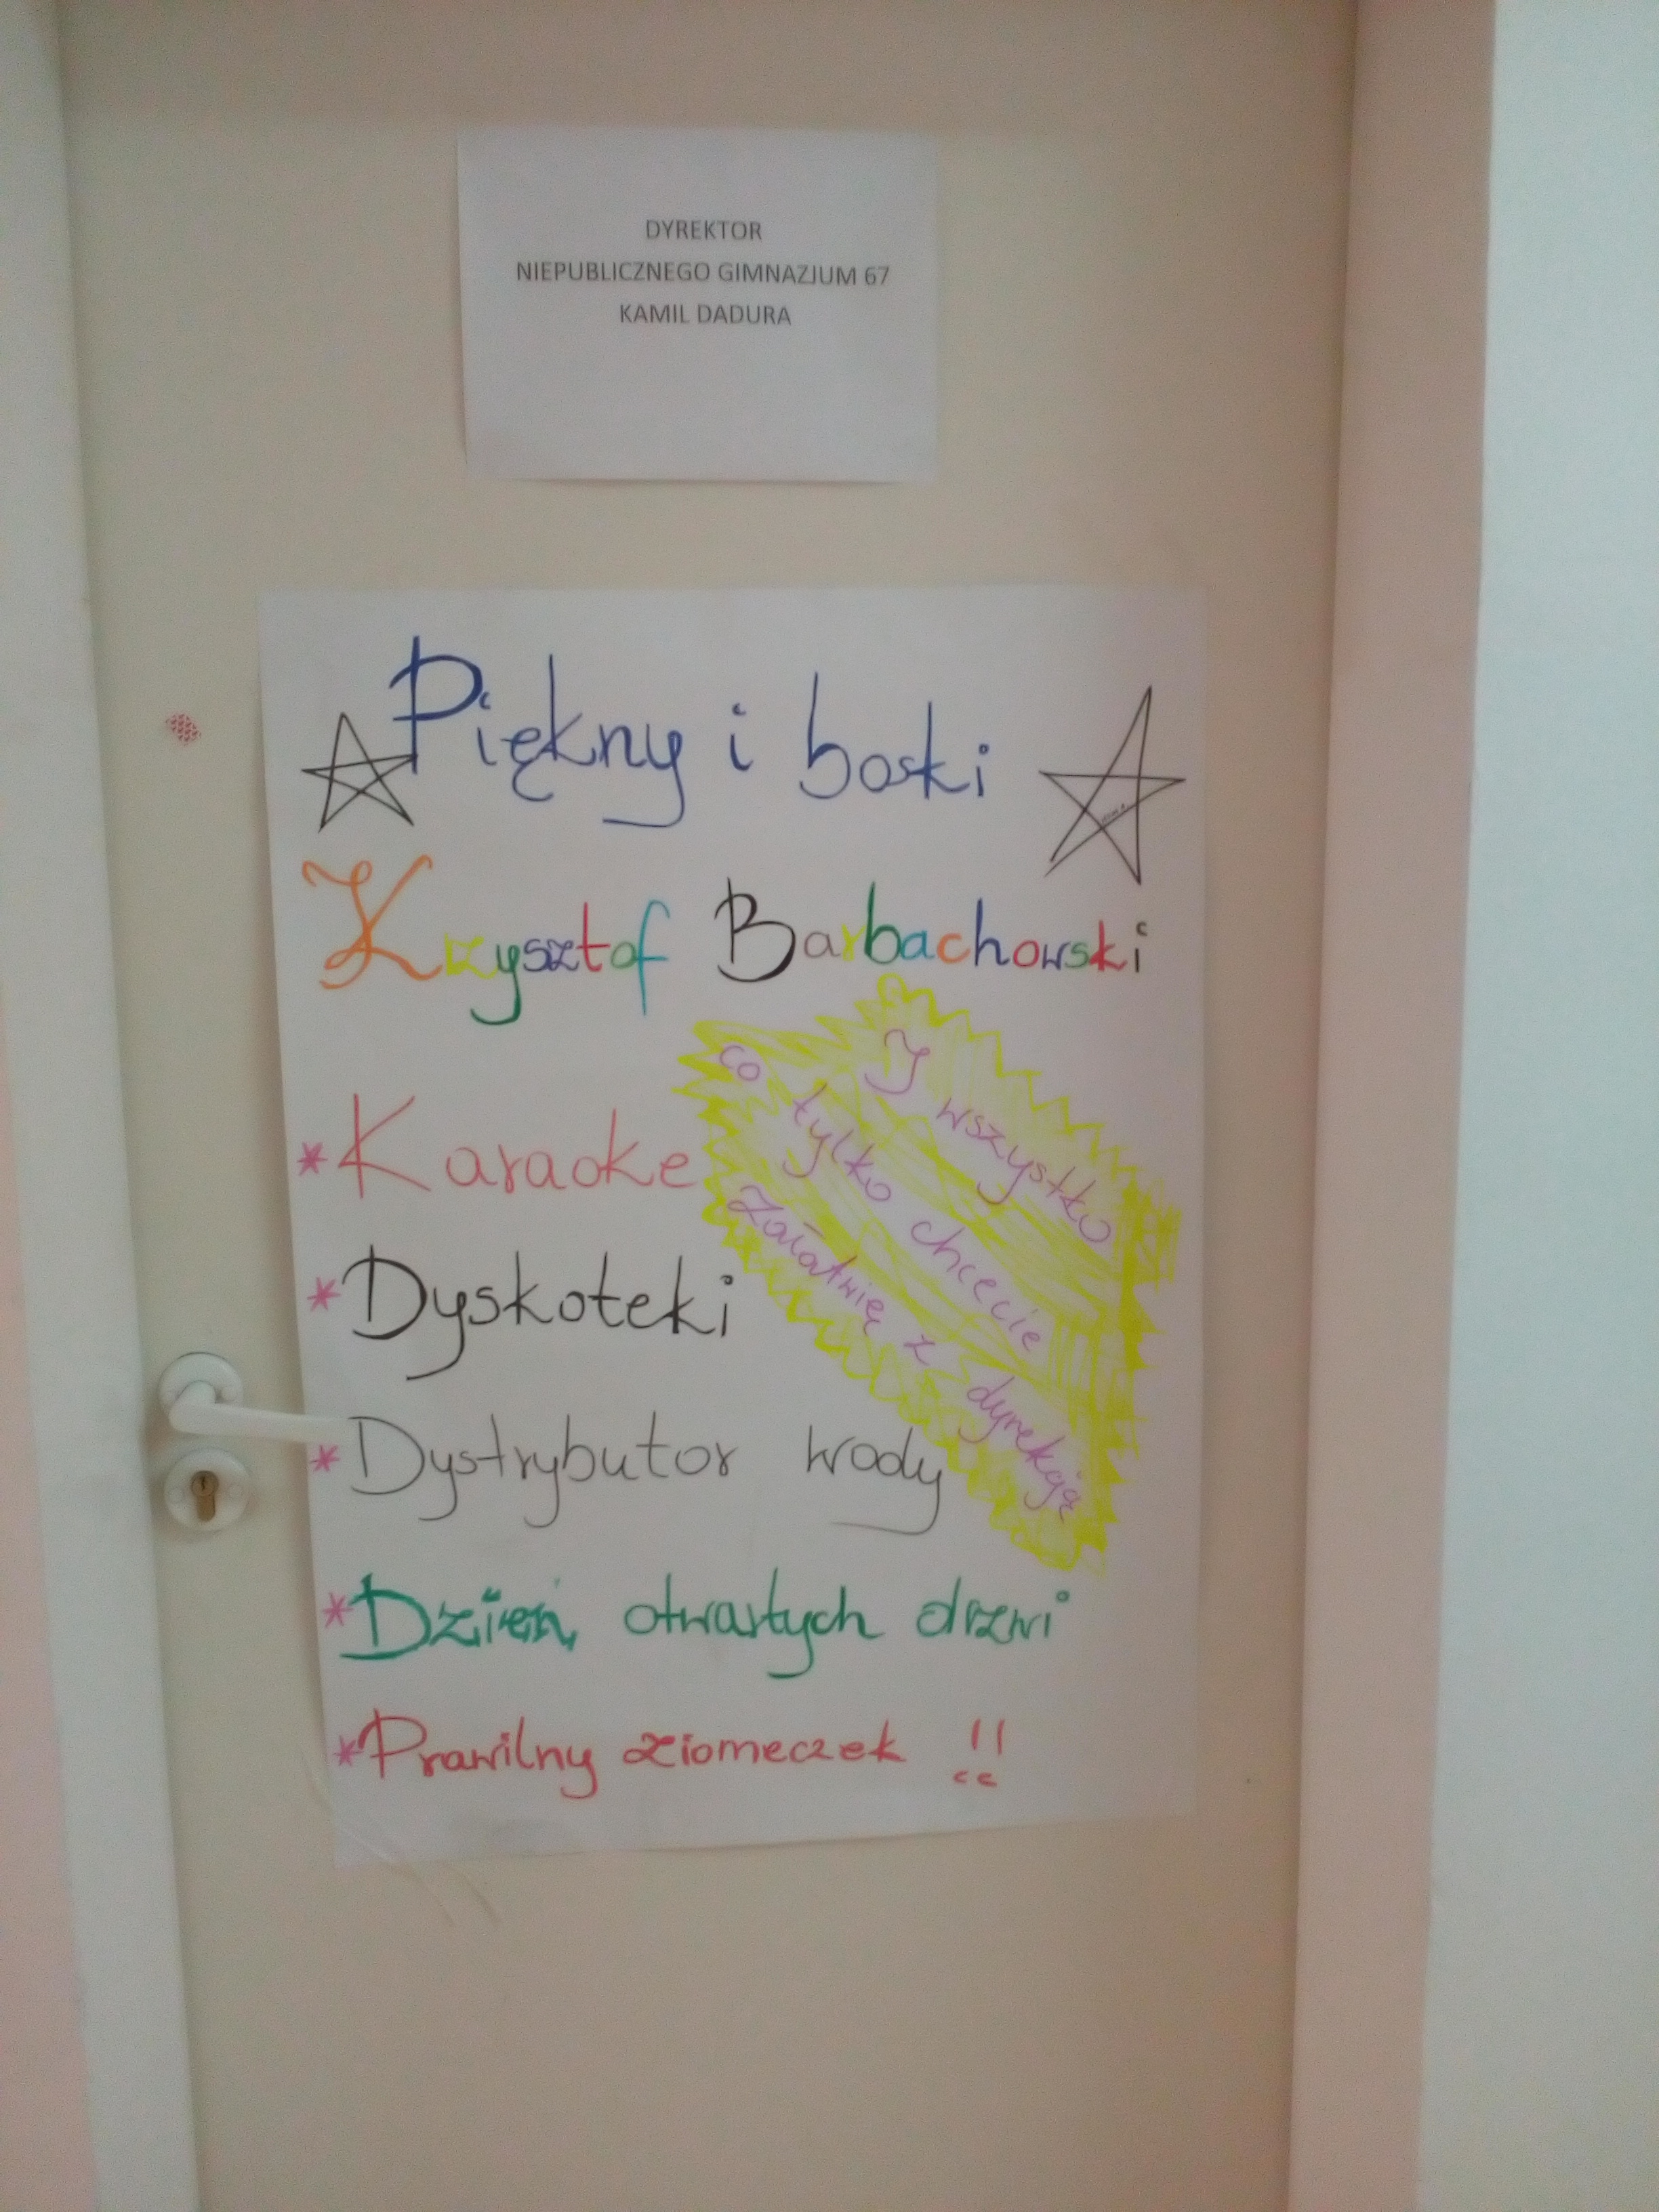 DYREKTOR
NIEPUBLICZNEGO GIMNAZJUM 67
KAMIL DADURA
Piękny i boski
Krzysztof Barbachowski
* Karaoke
* Dyskoteki
* Dystrybutor wody
* Dzień otwartych drzwi
* Prawilny ziomeczek !!
I wszystko
co tylko chcecie
załatwię z dyrekcją